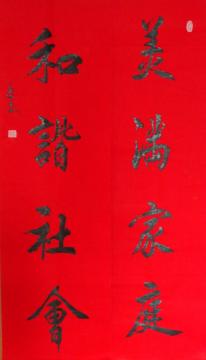 美满家庭
和谐社會